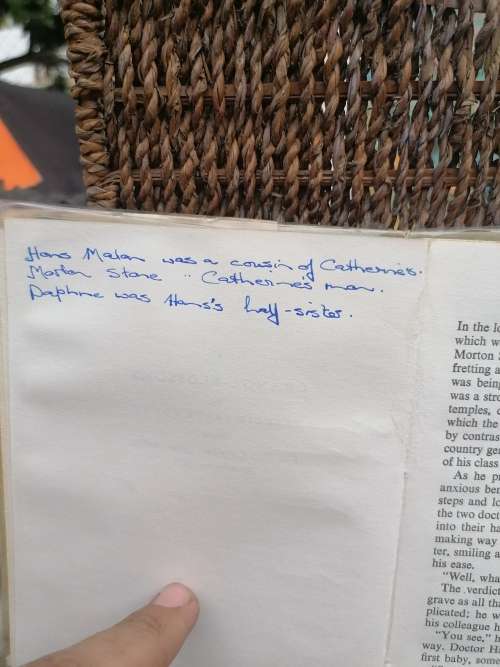 Hans Malan was a cousin of Catherine's.
Morton Stone " Catherine's man.
Daphne was Hans's half-sister.
In the
which w
Morton
fretting a
was bein
was a stro
temples,
which the
by contras
country ge
of his class
As he p
anxious be
steps and lo
the two doct
into their ha
making way
ter, smiling a
his ease.
"Well, wha
The verdict
grave as all th
plicated; he w
his colleague h
"You see," h
way. Doctor H
first baby, some